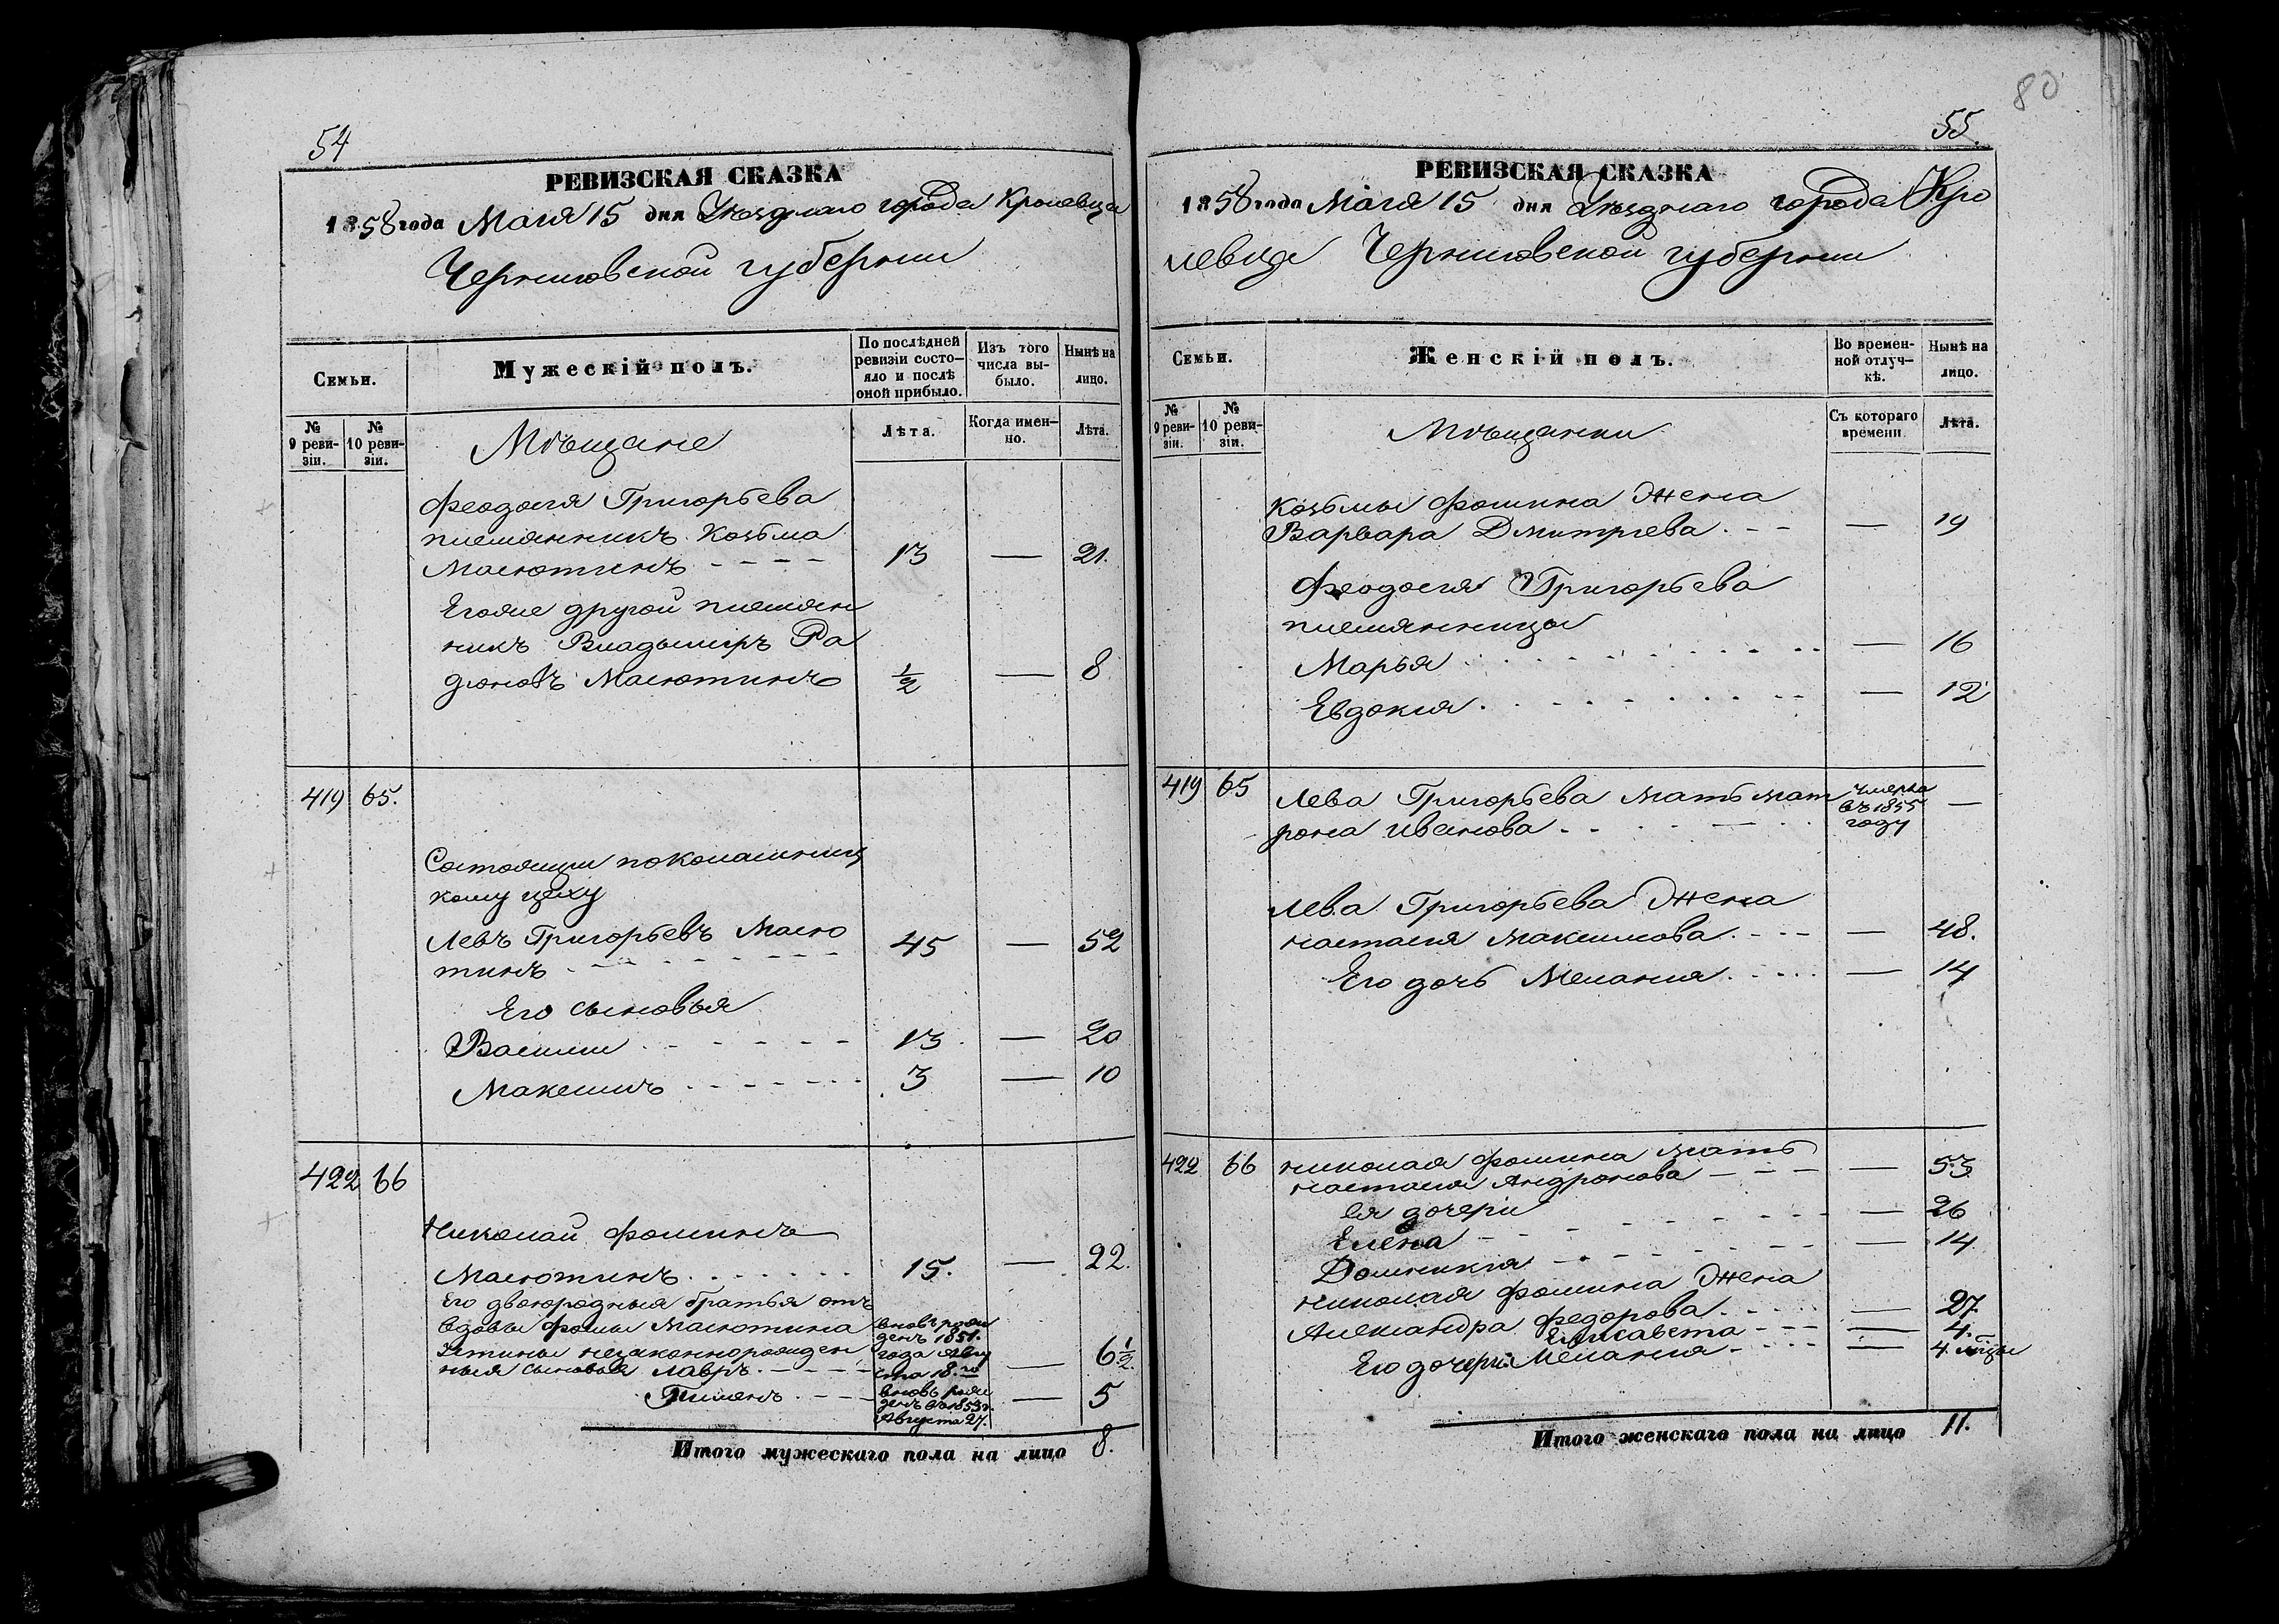 54
РЕВИЗСКАЯ СКАЗКА
1858 года Маія 15 дня Уѣзднаго города Кролевца
Черниговской губерніи
Семьи.
Мужескій полъ.
По послѣдней ревизіи состо-
яло и послѣ оной прибыло.
Изъ того числа вы-
было.
Нынѣ на лицо.
№ 9 реви-
зіи.
№ 10 реви-
зіи.
Мѣщане
Лѣта.
Когда имен-
но.
Лѣта.
Феодосія Григорьева
племянникъ Козьма
Масютинъ - - - - 13 — 21.
Егоже другой племян
никъ Владымиръ Ра
дионовъ Масютинъ ½ — 8
419 65.
Состоящии по
кому цеху
Левъ Григорьевъ Масю 45 — 52
тинъ
Его сыновья
Василии 13 — 20
Максимъ 3 — 10
422 66
Николай Фоминъ
Масютинъ 15. — 22.
Его двоюродныя братья отъ
вдовы Фомы Масютина
Устины незаконнорожден
ныя сыновья Лавръ
вновь рож
денъ 1851.
года Авгу
ста 18.го — 6½
Пименъ
вновь рож
денъ въ 1853 г.
Августа 27. — 5
Итого мужескаго пола на лицо 8.
80
55
РЕВИЗСКАЯ СКАЗКА
1858 года Маія 15 дня Уѣзднаго города Кро
левца Черниговской губерніи
Семьи.
Женскій полъ.
Во времен-
ной отлуч-
кѣ.
Нынѣ на лицо.
№ 9 реви-
зіи.
№ 10 реви-
зіи.
Мѣщанки
Съ котораго времени
Лѣта.
Козьмы Фомина Жена
Варвара Дмитріева. - - — 19
Феодосія Григорьева
племянницы
Марья — 16
Евдокия — 12
419 65 Лева Григорьева мать мат
рона Иванова
умерла
въ 1855
году —
Лева Григорьева Жена
настасия Максимова. — 48.
Его дочь Мелания — 14
422 66 николая Фомина мать
настасия Андронова — 53
Ея дочери
Елена — 26
Домникия — 14
николая Фомина Жена
Александра Федорова. — 27
Елисавета — 4.
Его дочери Мелания — 4 мѣсцы
Итого женскаго пола на лицо 11.